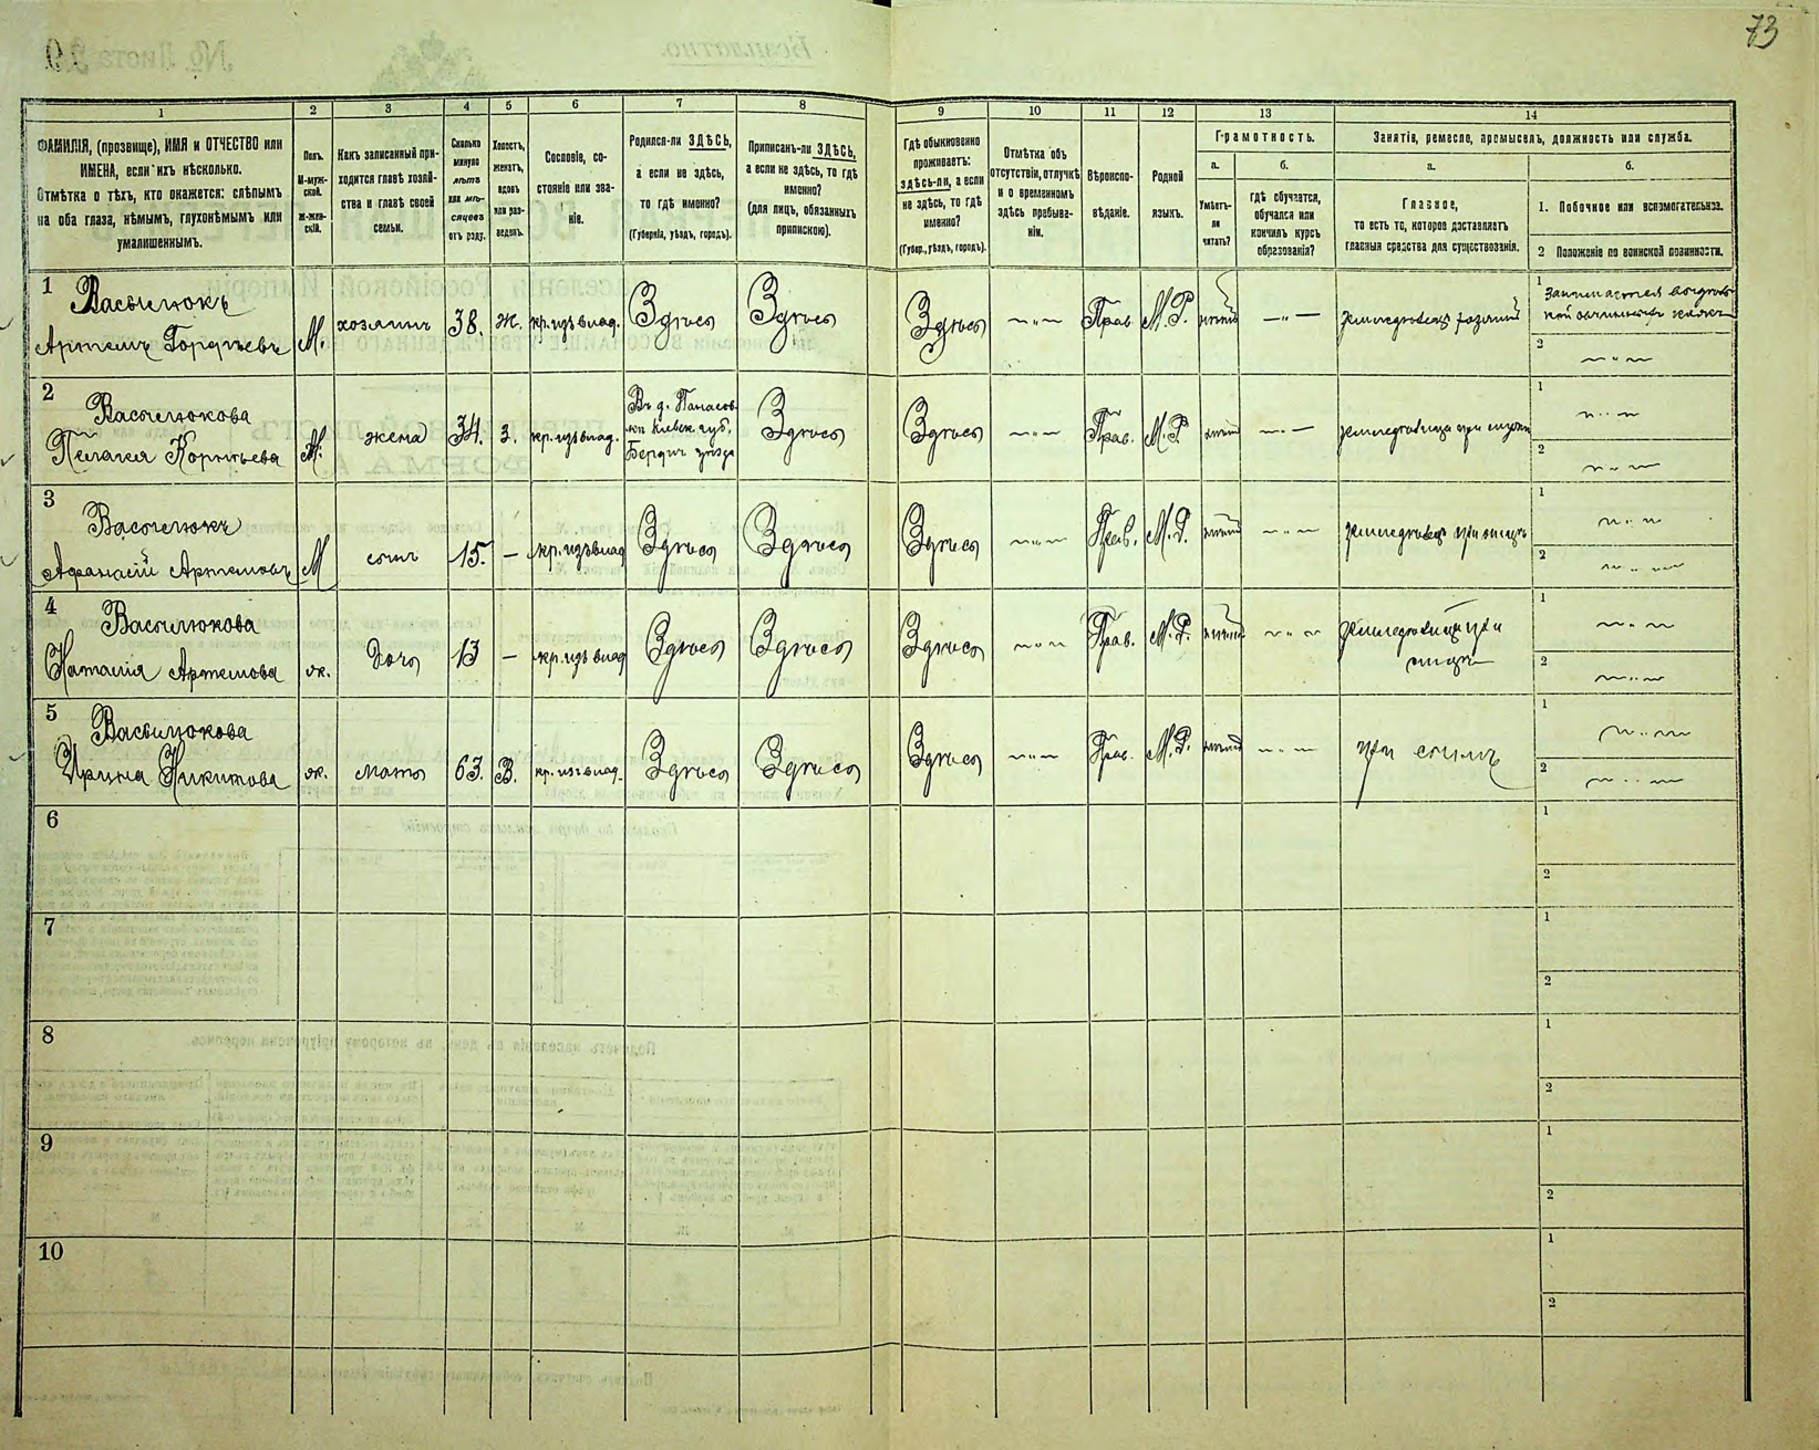 73
1
2
3
4
5
6
7
8
9
10
11
12
13
14
ФАМИЛІЯ, (прозвище), ИМЯ и ОТЧЕСТВО или
ИМЕНА, если ихъ нѣсколько.
Отмѣтка о тѣхъ, кто окажется: слѣпымъ
на оба глаза, нѣмымъ, глухонѣмымъ или
умалишеннымъ.
Полъ.
М-муж-
ской.
Ж-жен-
скій.
Какъ записанный при-
ходится главѣ хозяй-
ства и главѣ своей
семьи.
Сколько
минуло
лѣтъ
или мѣ-
сяцевъ
отъ роду.
Холостъ,
женатъ,
вдовъ
или раз-
веденъ.
Сословіе, со-
стояніе или зва-
ніе.
Родился-ли ЗДѢСЬ,
а если не здѣсь,
то гдѣ именно?
(Губернія, уѣздъ, городъ).
Приписанъ-ли ЗДѢСЬ,
а если не здѣсь, то гдѣ
именно?
(для лицъ, обязанныхъ
припискою).
Гдѣ обыкновенно
проживаетъ:
здѣсь-ли, а если
не здѣсь, то гдѣ
именно?
(Губер., уѣздъ, городъ).
Отмѣтка объ
отсутствіи, отлучкѣ
и о временномъ
здѣсь пребыва-
ніи.
Вѣроиспо-
вѣданіе.
Родной
языкъ.
Грамотность.
а.
Умѣетъ-
ли
читать?
б.
гдѣ обучается,
обучался или
кончилъ курсъ
образованія?
Занятіе, ремесло, промыселъ, должность или служба.
а.
Главное,
то есть то, которое доставляетъ
главныя средства для существованія.
б.
1. Побочное или вспомогательное.
2 Положеніе по воинской повинности.
1 Василюкъ
Артемъ Гордѣевъ М. хозяинъ 38. Ж. кр. изъ влад. Здѣсь Здѣсь Здѣсь Прав. М. Р. земледѣлецъ хозяинъ
1
2
2 Василюкова
Пелагея Корнѣева жена 34. З. кр. изъ влад. Въ д. Панасов-
ки Кіевск. губ.
Бердич. уѣзда Здѣсь Здѣсь Прав. М. Р. земледѣлица при мужѣ
1
2
3 Василюкъ
Афанасій Артемовъ М сынъ 15. – кр. изъ влад Здѣсь Здѣсь Здѣсь Прав. М. Р. земледѣлецъ при отцѣ
1
2
4 Василюкова
Наталія Артемова ж. дочь 13 – кр. изъ влад Здѣсь Здѣсь Здѣсь Прав. М. Р. земледѣлица при
отцѣ
1
2
5 Василюкова
Ирина Никитова ж. мать 63. В. кр. изъ влад. Здѣсь Здѣсь Здѣсь Прав. М. Р. при сынѣ
1
2
6
1
2
7
1
2
8
1
2
9
1
2
10
1
2